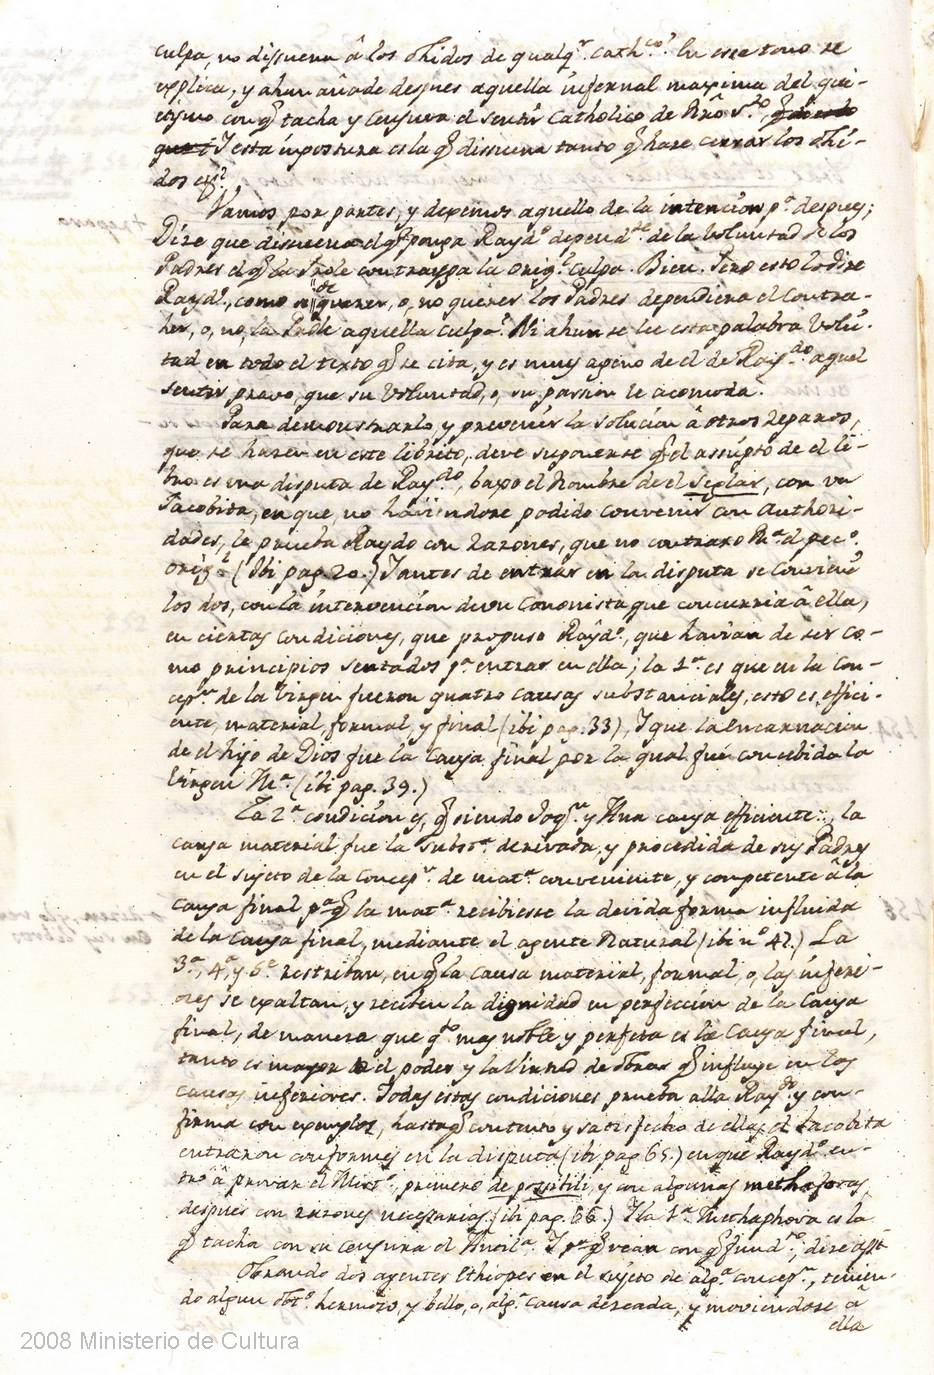 culpa, no dissuena â los ohidos de qualqr. cathco. En este tono se
explica, y ahun añade despues aquella infernal maxima del qui-
etismo con q tacha y censura el sentir Catholico de
Y esta impostura es la q dissuena tanto q hace cerrar los ohi-
dos
Vamos por partes, y dexemos aquello de la intencion pa. despues;
Dize que dissuena el q ponga Raydo. dependte. de la voluntad de los
Padres el q la Prole contrayga la origl. culpa. Bien. Pero esto lo dize
Raydo., como si de querer, o, no querer los Padres dependiera el contra-
her, o, no, la Prole aquella culpa? Ni ahun se lee esta palabra volũ-
tad en todo el texto q se cita, y es muy ageno de el de Raydo. aquel
sentir pravo, que su voluntad, o, su passion le acomoda.
Para demonstrarlo, y prevenir la solucion â otros reparos,
que se hazen en este librito, deve suponerse q el assupto de el li-
bro es una disputa de Raydo, baxo el nombre de el Seglar, con un
Jacobita, en que, no haviendose podido convenir con authori-
dades, le prueba Raydo con razones, que no contraxo Ma. el pecdo.
origl. (ibi pag. 20.) Y antes de entrar en la disputa se convinie
los dos, con la intervencion de un Canonista que concurria â ella,
en ciertas condiciones, que propuso Raydo., que havian de ser co-
mo principios sentados pa. entrar en ella; la 1a. es que en la con-
cepn. de la Virgen fueron quatro causas substanciales, esto es, effici-
ente, material, formal, y final (ibi pag. 33), Y que la Encarnacion
de el hijo de Dios fue la causa final por la qual fue concebida la
Virgen Ma. (ibi pag. 39.)
La 2a. condicion es, q siendo Joqn. y Ana causa efficiente, la
causa material fue la substa. derivada, y procedida de sus Padres
en el sujeto de la concepn. de mata. conveniente, y competente â la
causa final pa. q la mata. recibiesse la devida forma influida
de la causa final, mediante el agente Natural (ibi no. 42.) La
3a., 4a., y 5a. restriban, en q la causa material, formal, o, las inferi-
ores se exaltan, y reciben la dignidad en perfeccion de la causa
final, de manera que qto. mas noble y perfeta es la causa final,
tanto es mayor el poder y la virtud de obrar q influye en las
causas inferiores. Todas estas condiciones prueba alla Raydo. y con-
firma con exemplos, hasta q contento y satisfecho de ellas el Jacobita
entraron conformes en la disputa (ibi pag 65.) en que Raydo. en-
trò â provar el Mistо., primero de possibili, y con algunas methaforas,
despues con razones necessarias. (ibi pag. 66.) Y la 1a. Methaphora es la
q tacha con su censura el Y pa. q vean con q fundto.; dize assi:
Obrando dos agentes Ethiopes en el sujeto de alga. concepn., tenien-
do algun obto. hermoso, y bello, o, alga. causa deseada, y moviendose â
ella
2008 Ministerio de Cultura